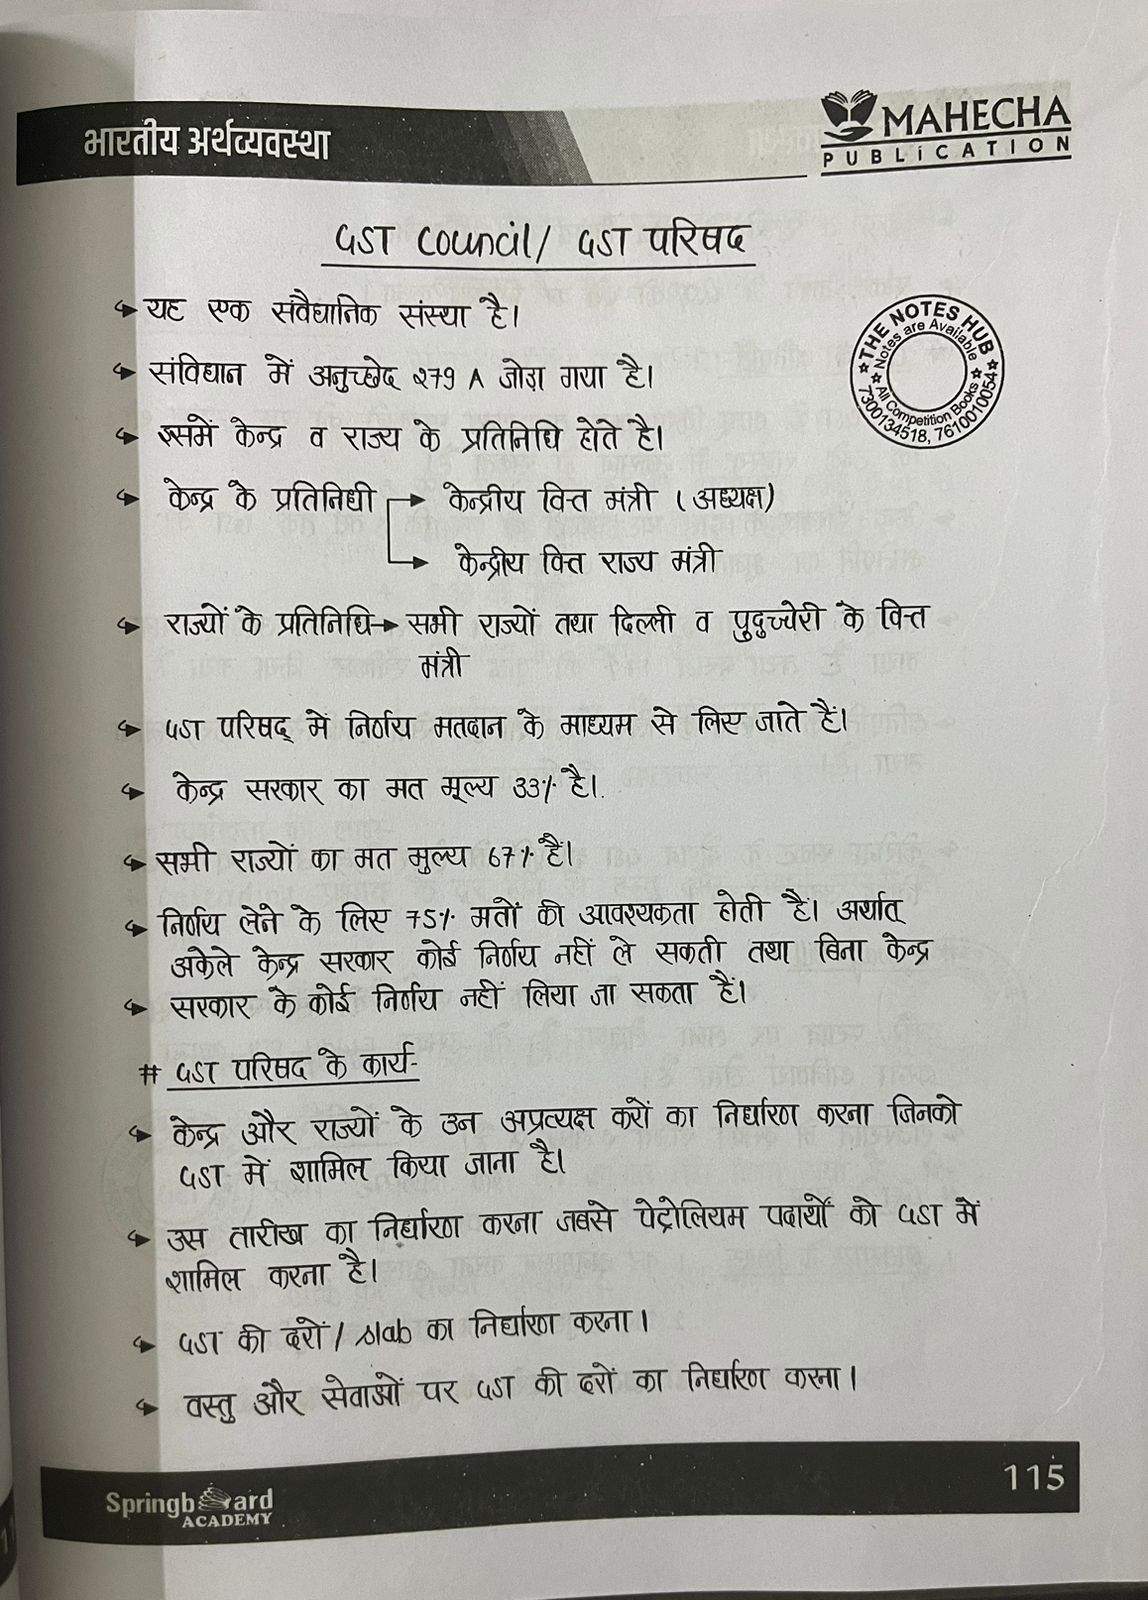 भारतीय अर्थव्यवस्था
MAHECHA
PUBLiCATION
GST Council/ GST परिषद
THE NOTES HUB
Notes are Available
All Competition Books
7300134518, 7610010054
↳ यह एक संवैधानिक संस्था है।
↳ संविधान में अनुच्छेद 279 A जोड़ा गया है।
↳ इसमें केन्द्र व राज्य के प्रतिनिधि होते है।
↳ केन्द्र के प्रतिनिधी → केन्द्रीय वित्त मंत्री (अध्यक्ष)
→ केन्द्रीय वित्त राज्य मंत्री
↳ राज्यों के प्रतिनिधि→ सभी राज्यों तथा दिल्ली व पुदुच्चेरी के वित्त
मंत्री
↳ GST परिषद् में निर्णय मतदान के माध्यम से लिए जाते हैं।
↳ केन्द्र सरकार का मत मूल्य 33% है।
↳ सभी राज्यों का मत मुल्य 67% हैं।
↳ निर्णय लेने के लिए 75% मतों की आवश्यकता होती हैं। अर्थात्
अकेले केन्द्र सरकार कोई निर्णय नहीं ले सकती तथा बिना केन्द्र
↳ सरकार के कोई निर्णय नहीं लिया जा सकता हैं।
# GST परिषद के कार्य-
↳ केन्द्र और राज्यों के उन अप्रत्यक्ष करों का निर्धारण करना जिनको
GST में शामिल किया जाना है।
↳ उस तारीख का निर्धारण करना जबसे पेट्रोलियम पदार्थों को GST में
शामिल करना है।
↳ GST की दरों / slab का निर्धारण करना।
↳ वस्तु और सेवाओं पर GST की दरों का निर्धारण करना।
Springboard
ACADEMY
115